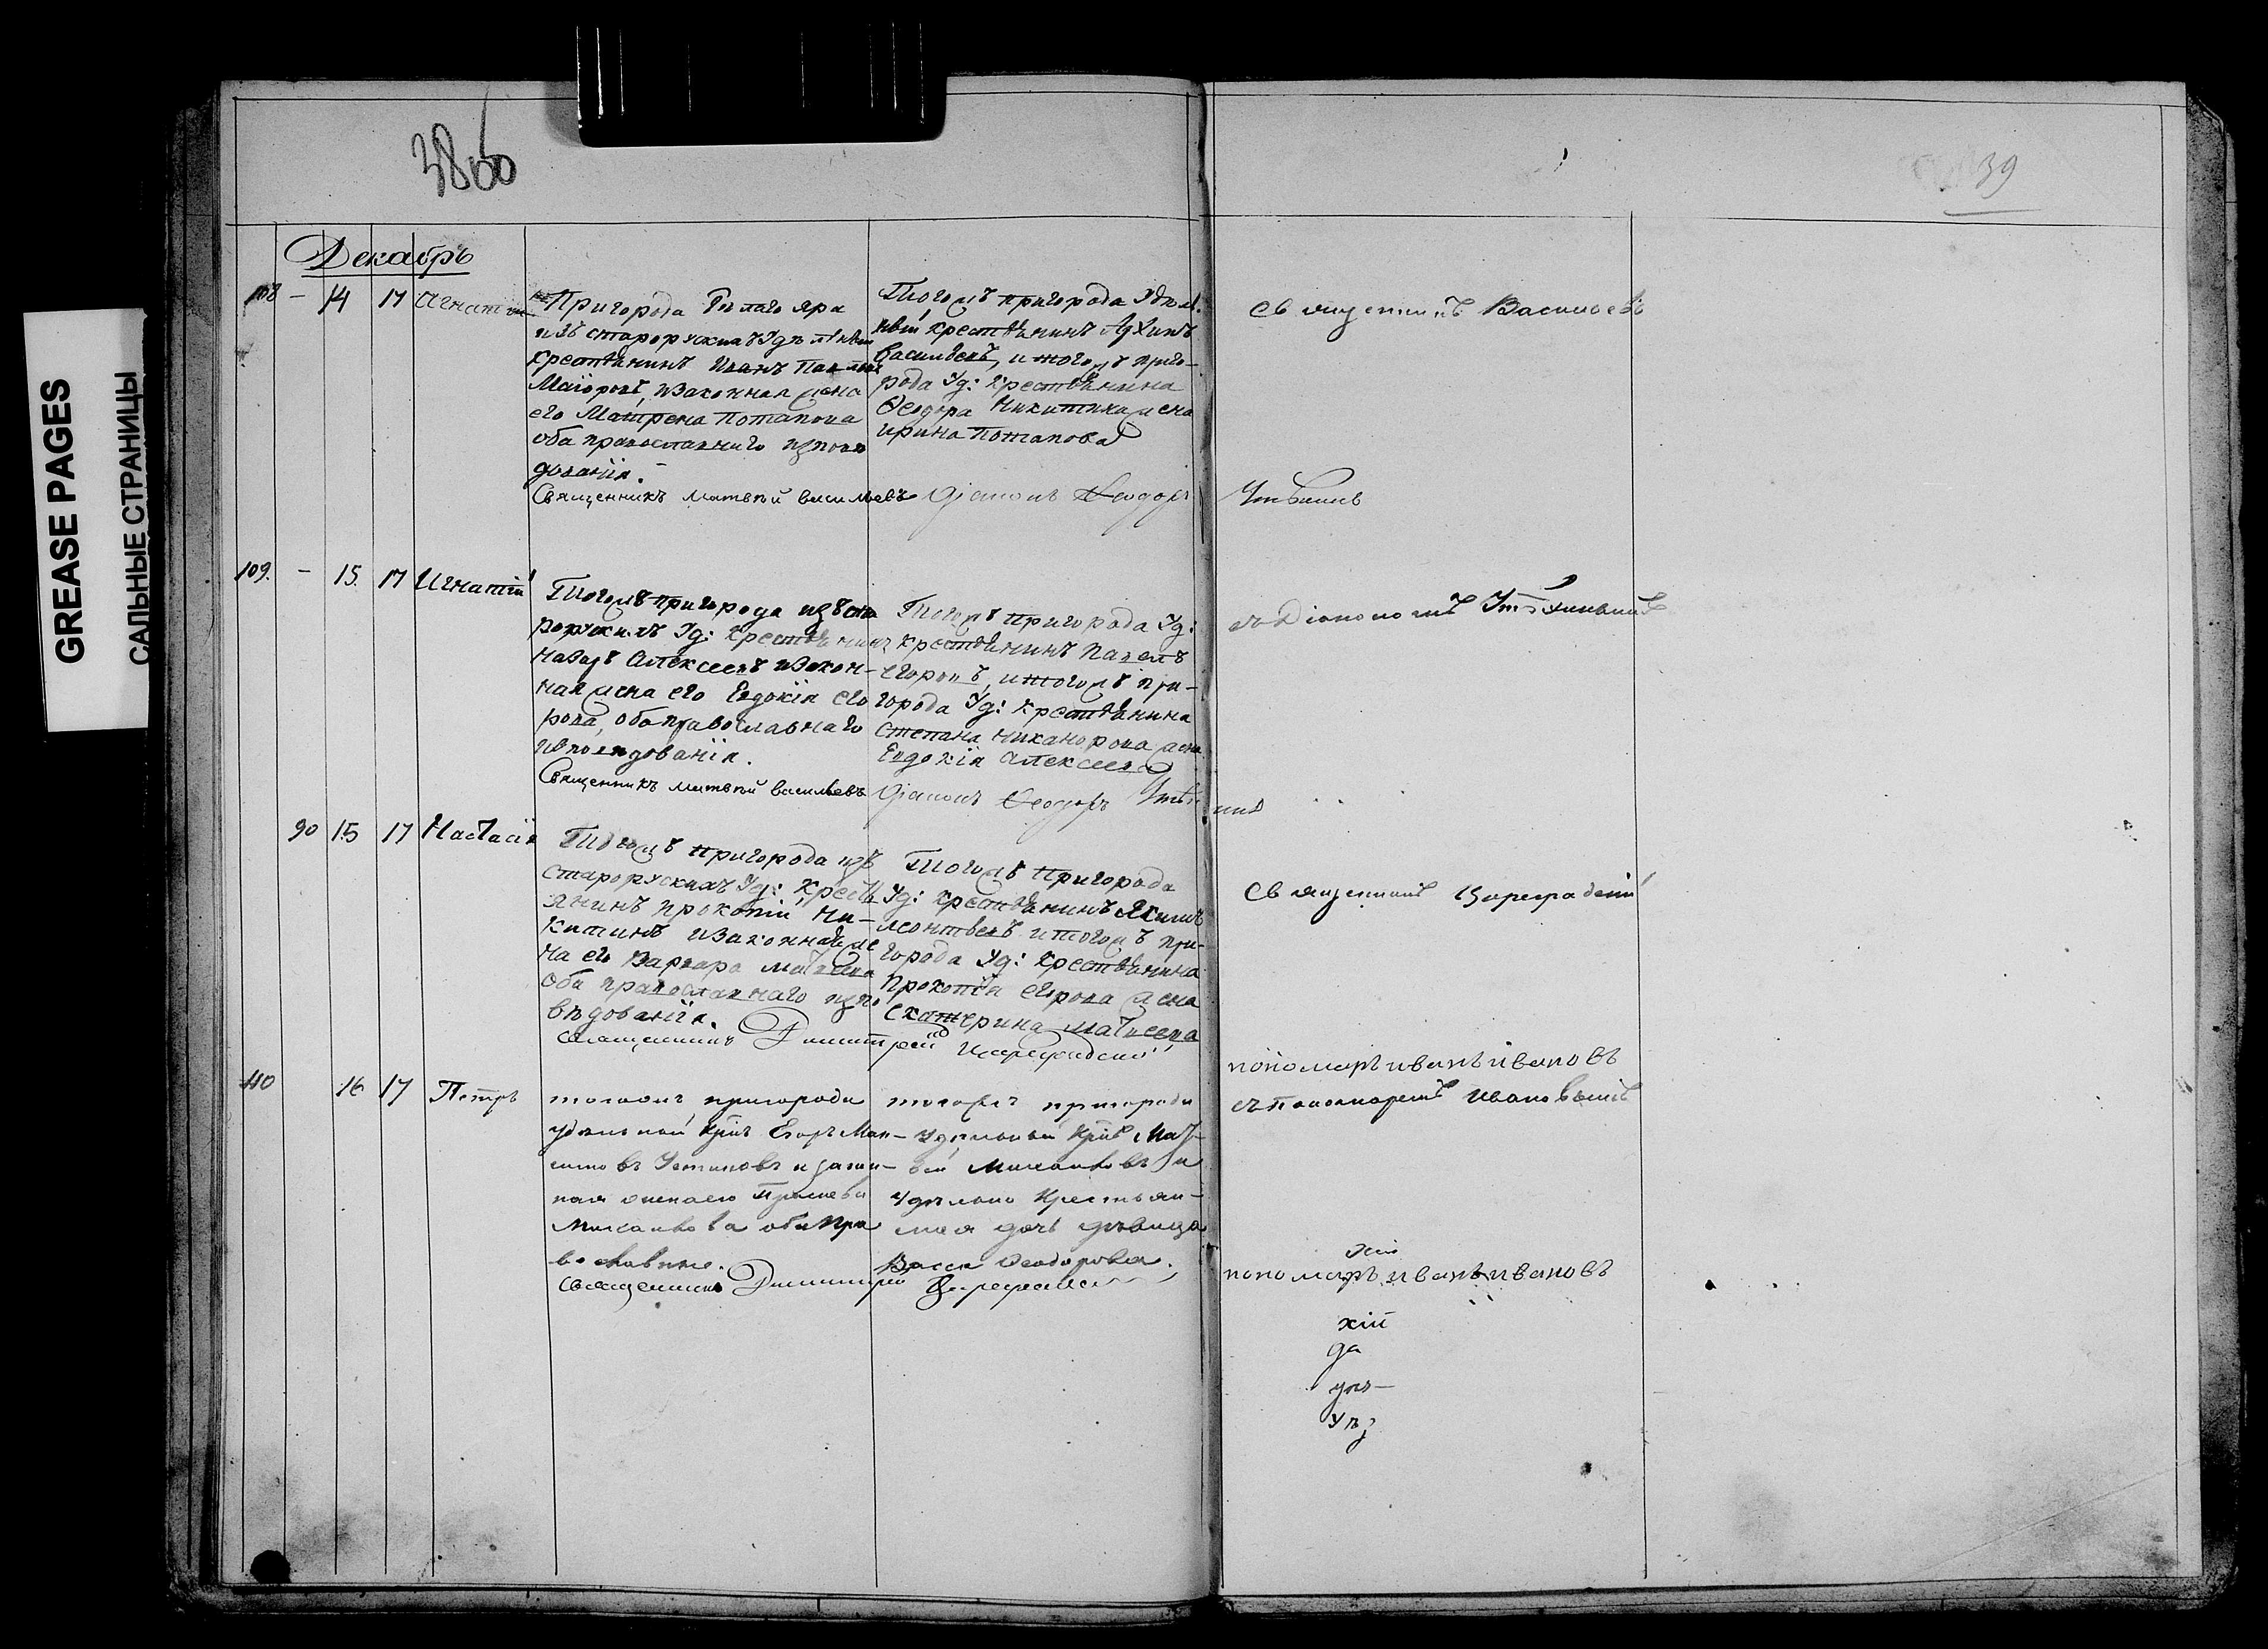 GREASE PAGES
САЛЬНЫЕ СТРАНИЦЫ
38об
39
Декабрь
108 – 14 17 Игнатій
Пригорода Бѣлаго яра
изъ старорускихъ Удѣльный
крестьянинъ Иванъ
Маіоровъ, изаконная жена
его Матрена Потапова
оба православнаго испове
дованія.
Священникъ Матвѣй Васильевъ
Тогожъ пригорода Удѣль-
ный крестьянинъ
Васильевъ, итогожъ приго-
рода Уд: крестьянина
Ѳеодора Никитина жена
ирина Потапова
Діаконъ Ѳеодоръ
Священникъ Васильевъ
109. – 15. 17 Игнатій
Тогожъ пригорода изъ ста
рорускихъ Уд: крестьянинъ
Назаръ Алексеевъ изакон-
ная жена его Евдокія Его
рова, оба православнаго
исповѣдованія.
Священникъ Матвѣй Васильевъ
Тогожъ пригорода Уд:
крестьянинъ Павелъ
Егоровъ, итогожъ при-
города Уд: крестьянина
Степана Никанорова жена
Евдокія Алексеева
Діаконъ Ѳеодоръ
съ Діакономъ
90 15 17 Настасія
Тогожъ пригорода изъ
старорускихъ Уд: кресть
янинъ Прокопій Ни-
китинъ изаконная же
на его Варвара Матвеева
оба православнаго испо
вѣдованія.
Священникъ Димитрій Цареградскій
Тогожъ пригорода
Уд: крестьянинъ Якимъ
Леонтьевъ итогожъ при-
города Уд: крестьянина
Прокопія Егорова жена
Екатерина Матвеева
Священникъ Цареградскій
пономарь иванъ ивановъ
110 16 17 Петръ
тогожъ пригорода
удѣльный крнъ Егоръ Мак-
симовъ Устиновъ и закон-
ная жена его
Михайлова оба пра
вославные.
Священникъ Димитрій Цареградскій
тогожъ пригорода
Удѣльный крнъ Мат-
вей Михайловъ и
удѣльно крестьян-
ская дочь дѣвица
Васса Ѳеодорова.
съ Пономаремъ Ивановымъ
пономарь иванъ ивановъ
хій
да